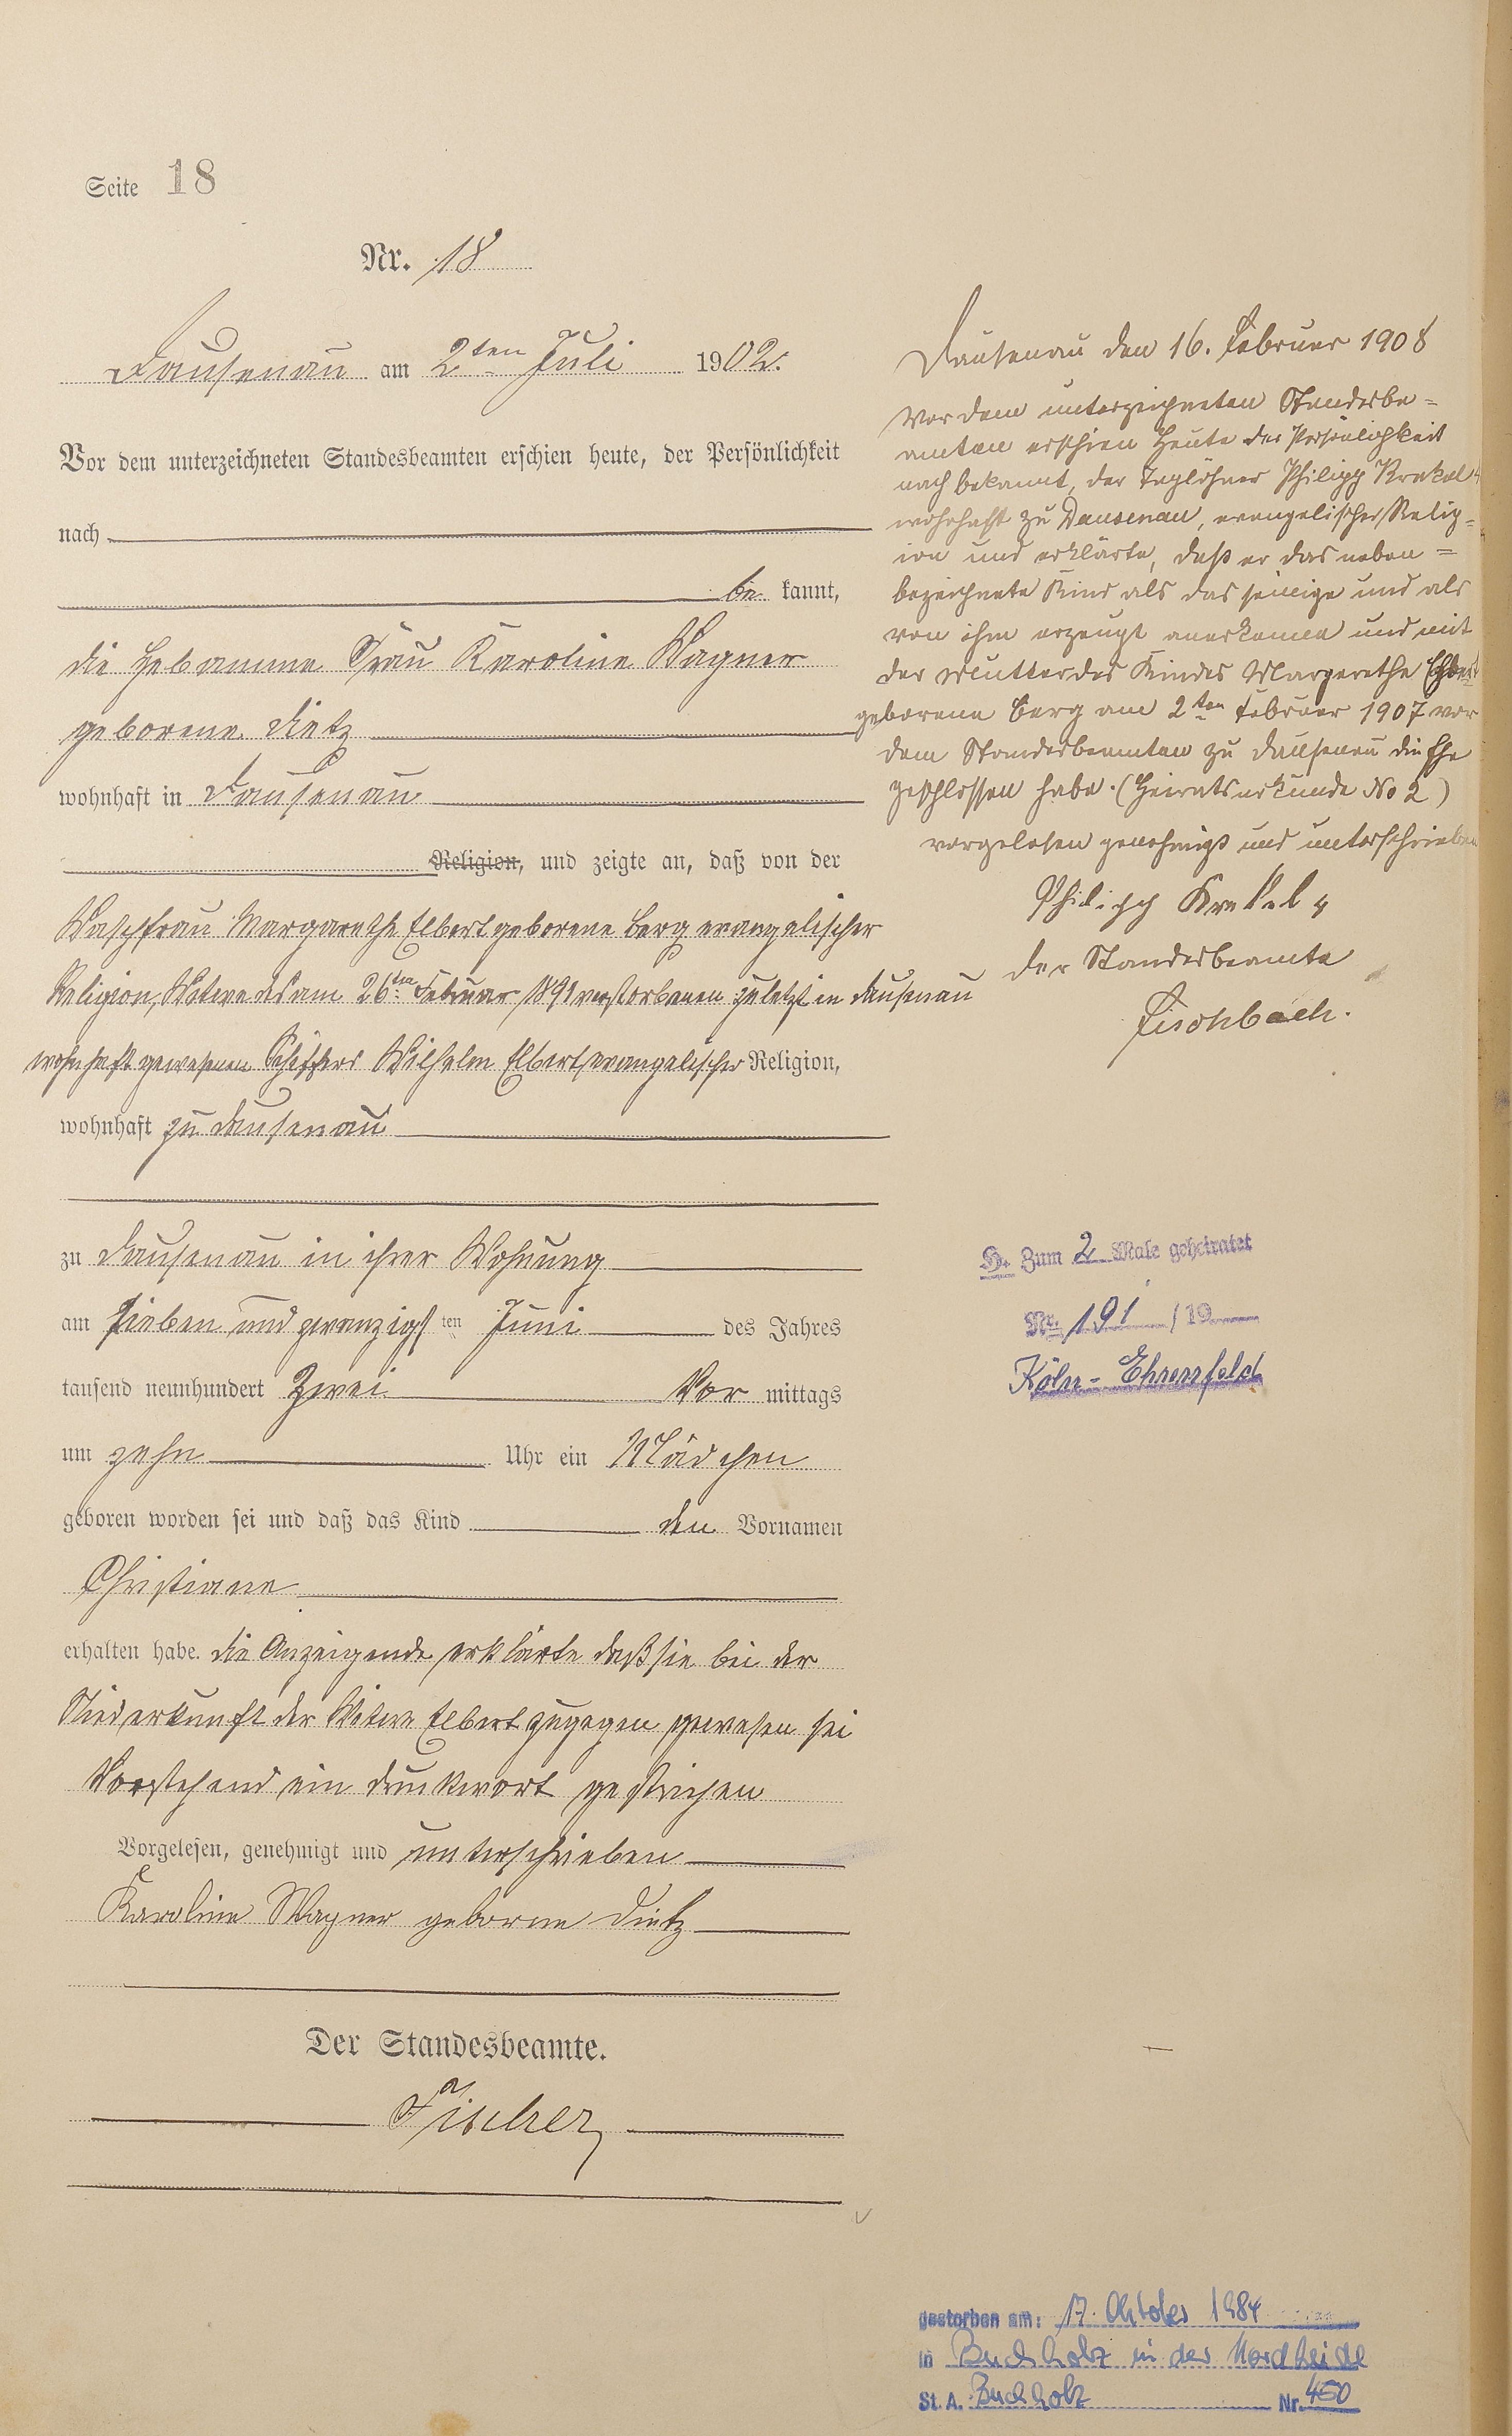 Seite 18
Nr. 18
Dausenau am 2ten Juli 1902.
Vor dem unterzeichneten Standesbeamten erschien heute, der Persönlichkeit
nach
be kannt,
die Hebamme Frau Karoline Wagner
geborene Dietz
wohnhaft in Dausenau
Religion, und zeigte an, daß von der
Waschfrau Margarethe Elbert geborene Berg evangelischer
Religion, Witwe des am 26ten Februar 1891 verstorbenen zuletzt in Dausenau
wohnhaft gewesenen Schiffers Wilhelm Elbert evangelischer Religion,
wohnhaft zu Dausenau
zu Dausenau in ihrer Wohnung
am sieben und zwanzigsten Juni des Jahres
tausend neunhundert zwei Vor mittags
um zehn Uhr ein Mädchen
geboren worden sei und daß das Kind den Vornamen
Christiane
erhalten habe. Die Anzeigende erklärte daß sie bei der
Niederkunft der Witwe Elbert zugegen gewesen sei
Vorstehend ein Druckwort gestrichen
Vorgelesen, genehmigt und unterschrieben
Karoline Wagner geborene Dietz
Der Standesbeamte.
Fischer
Dausenau den 16. Februar 1908
Vor dem unterzeichneten Standesbe=
amten erschien heute der Persönlichkeit
nach bekannt, der Taglöhner Philipp Krekel
wohnhaft zu Dausenau, evangelischer Relig=
ion und erklärte, daß er das neben=
bezeichnete Kind als das seinige und als
von ihm erzeugt anerkenne und mit
der Mutter des Kindes Margarethe Elbert
geborene Berg am 2ten Februar 1907 vor
dem Standesbeamten zu Dausenau die Ehe
geschlossen habe. (Heiratsurkunde No 2)
vorgelesen genehmigt und unterschrieben
Philipp Krekel
Der Standesbeamte
Fischbach.
H. Zum 2 Male geheiratet
Nr. 191 /19
Köln-Ehrenfeld
gestorben am: 17. Oktober 1984
in Buchholz in der Nordheide
St. A. Buchholz Nr. 450